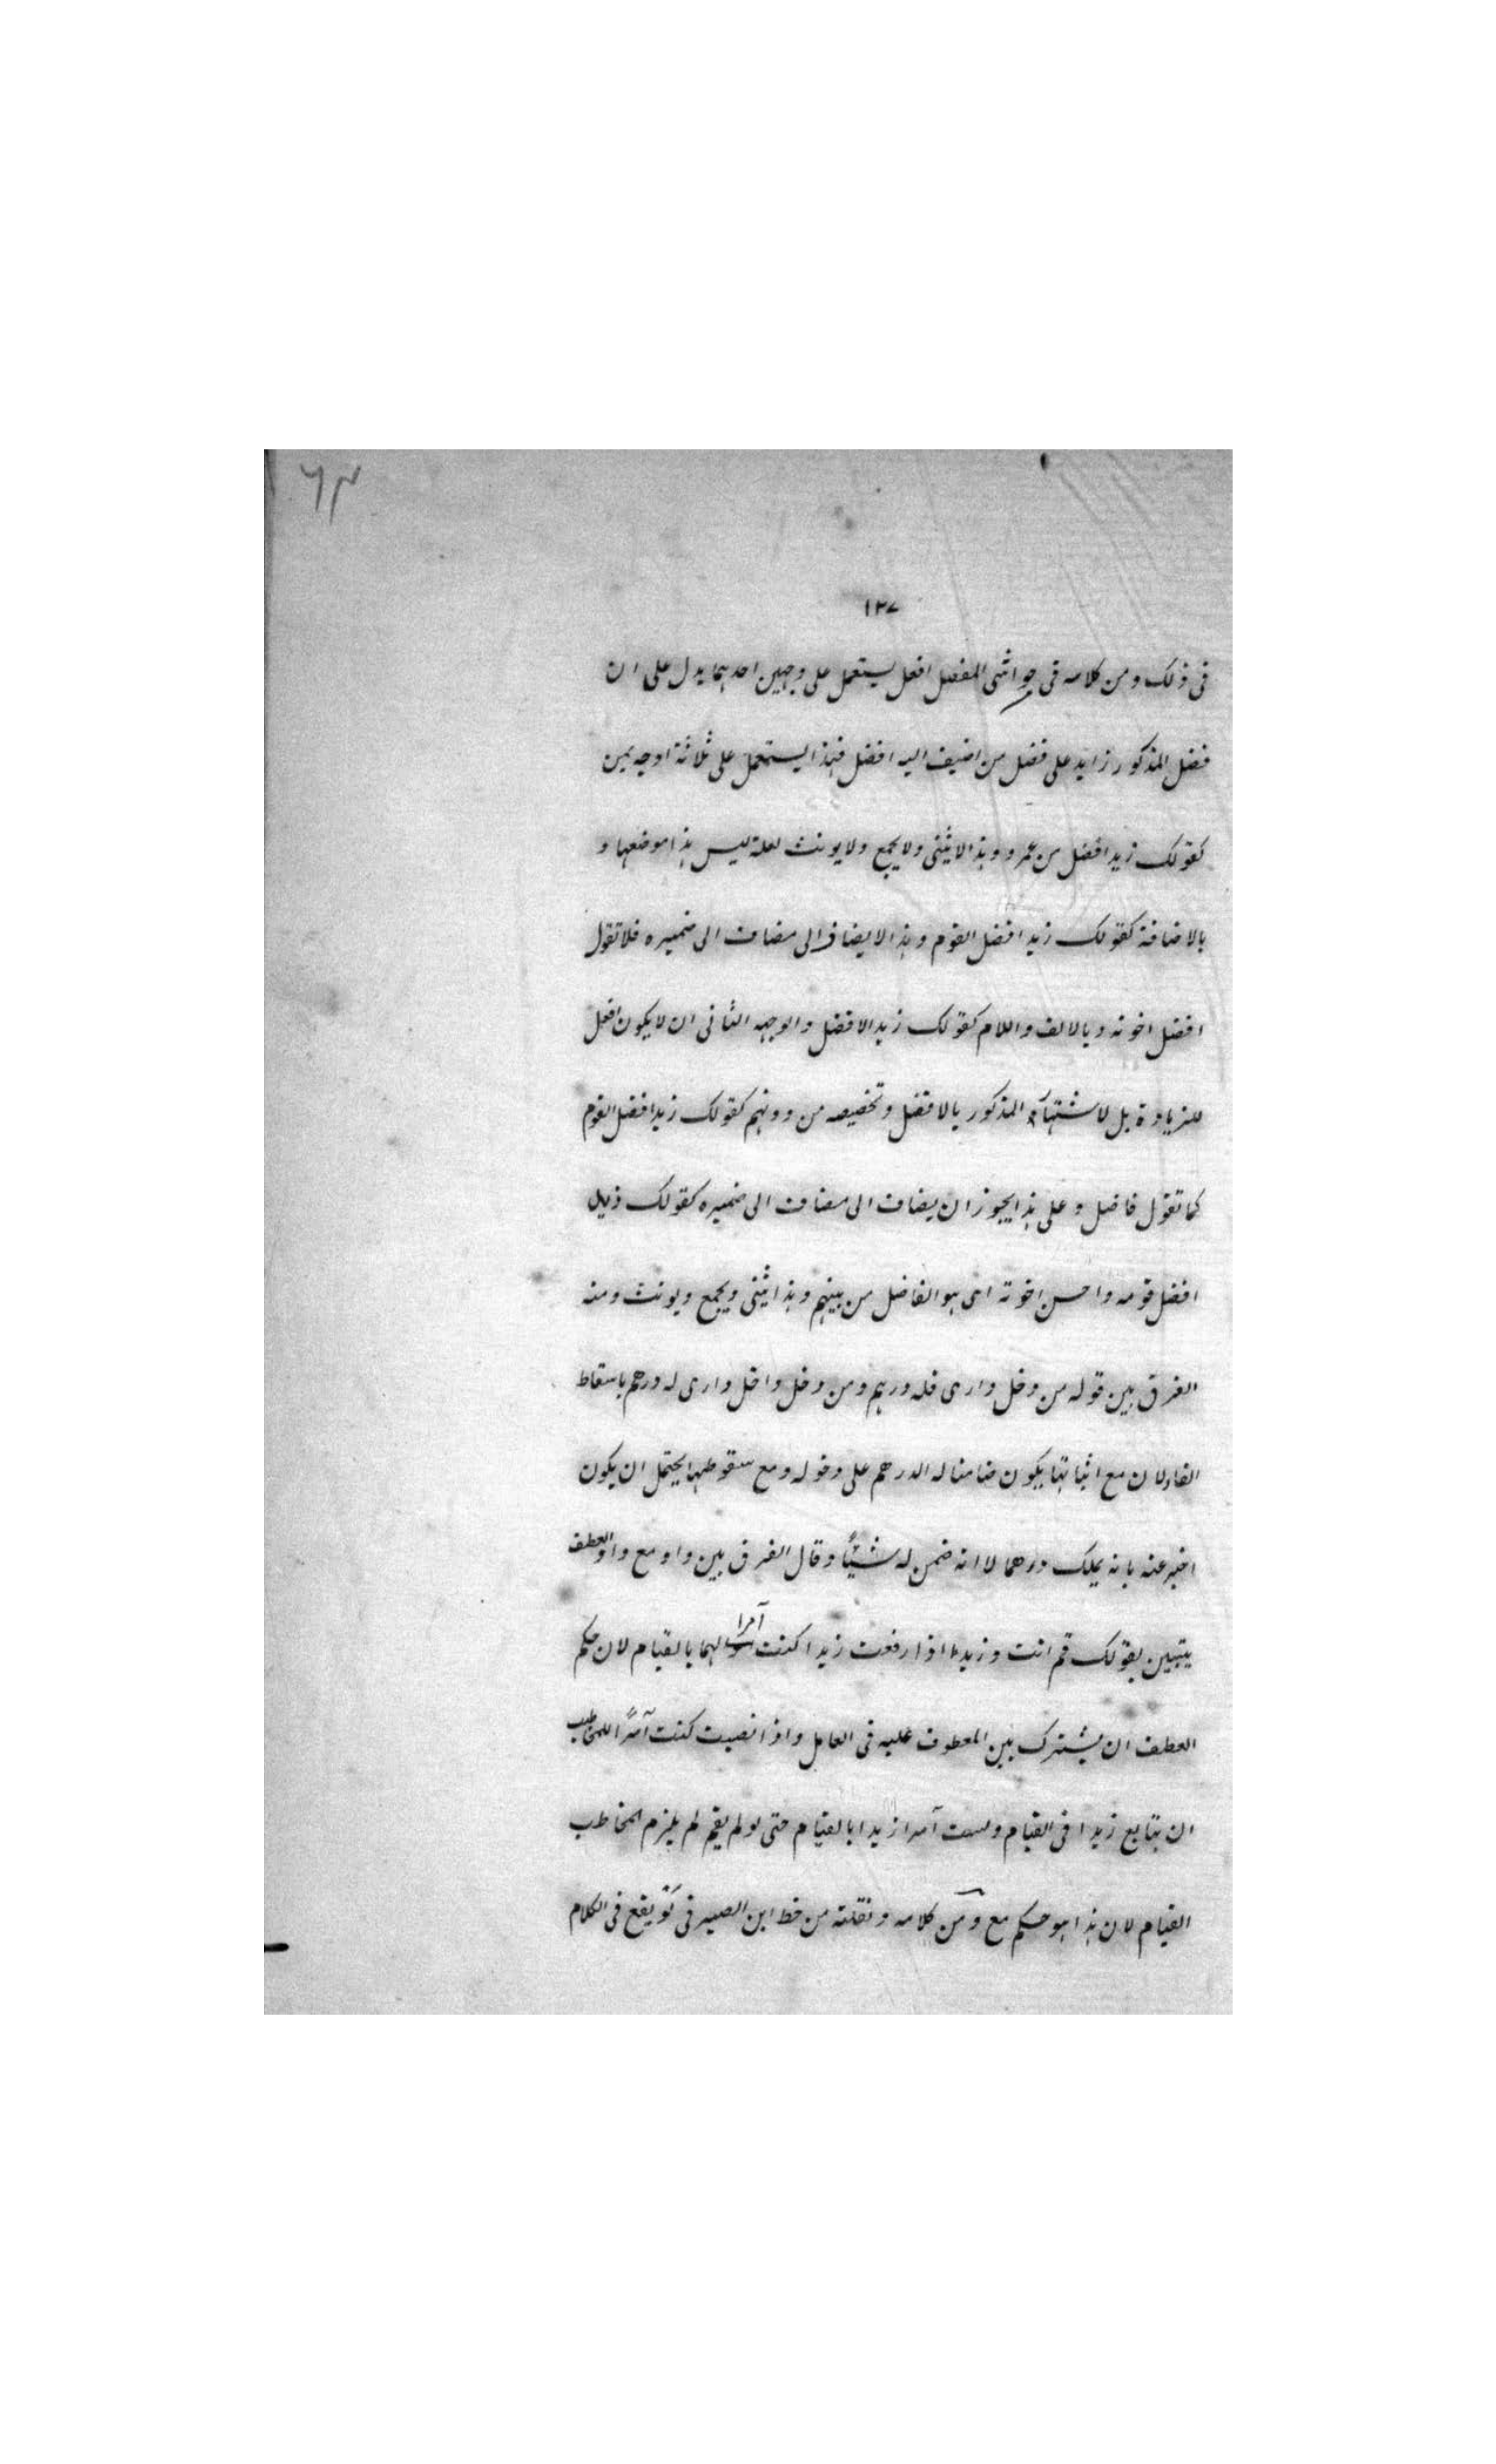 ١٣٧
فى ذلك ومن كلامه فى حواشى المفصل افعل يستعمل على وجهين احدهما يدل على ان
فضل المذكور زايد على فضل من اضيف اليه افضل فهذا يستعمل على ثلاثة اوجه بمن
كقولك زيد افضل من عمرو وهذا لا يثنى ولا يجمع ولا يونث لعلة ليس هذا موضعها و
بالاضافة كقولك زيد افضل القوم وهذا لا يضاف الى مضاف الى ضميره فلا تقول
افضل اخوته وبالالف واللام كقولك زيد الافضل والوجه الثانى ان لا يكون افعل
للزيادة بل لاشتهآر المذكور بالافضل وتخصيصه من دونهم كقولك زيد افضل القوم
كما تقول فاضل وعلى هذا يجوز ان يضاف الى مضاف الى ضميره كقولك زيد
افضل قومه واحسن اخوته اى هو الفاضل من بينهم وهذا يثنى ويجمع ويونث ومنه
الفرق بين قوله من دخل دارى فله درهم ومن دخل داخل دارى له درهم باسقاط
الفاء لان مع اثباتها يكون ضامنا له الدرهم على دخوله ومع سقوطها يحتمل ان يكون
اخبر عنه بانه يملك درهما لا انه ضمن له شيئًا وقال الفرق بين واو مع واو العطف
يتبين بقولك قم انت وزيدا اذا رفعت زيدا كنت آمرا لهما بالقيام لان حكم
العطف ان يشترك بين المعطوف عليه فى العامل واذا نصبت كنت آمرًا للمخاطب
ان يتابع زيدا فى القيام ولست آمرا زيدا بالقيام حتى لو لم يقم لم يلزم المخاطب
القيام لان هذا هو حكم مع ومن كلامه ونقلته من خط ابن الصيرفى يقع فى الكلام